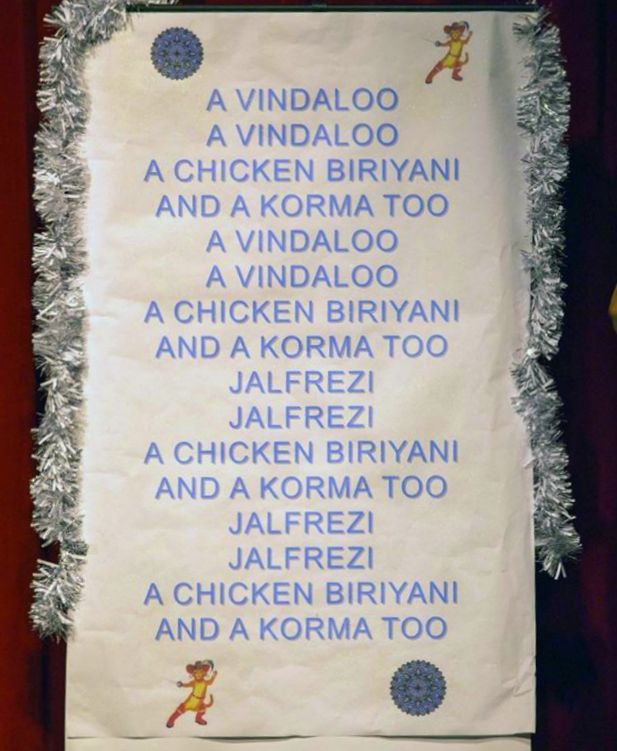 A VINDALOO
A VINDALOO
A CHICKEN BIRIYANI
AND A KORMA TOO
A VINDALOO
A VINDALOO
A CHICKEN BIRIYANI
AND A KORMA TOO
JALFREZI
JALFREZI
A CHICKEN BIRIYANI
AND A KORMA TOO
JALFREZI
JALFREZI
A CHICKEN BIRIYANI
AND A KORMA TOO